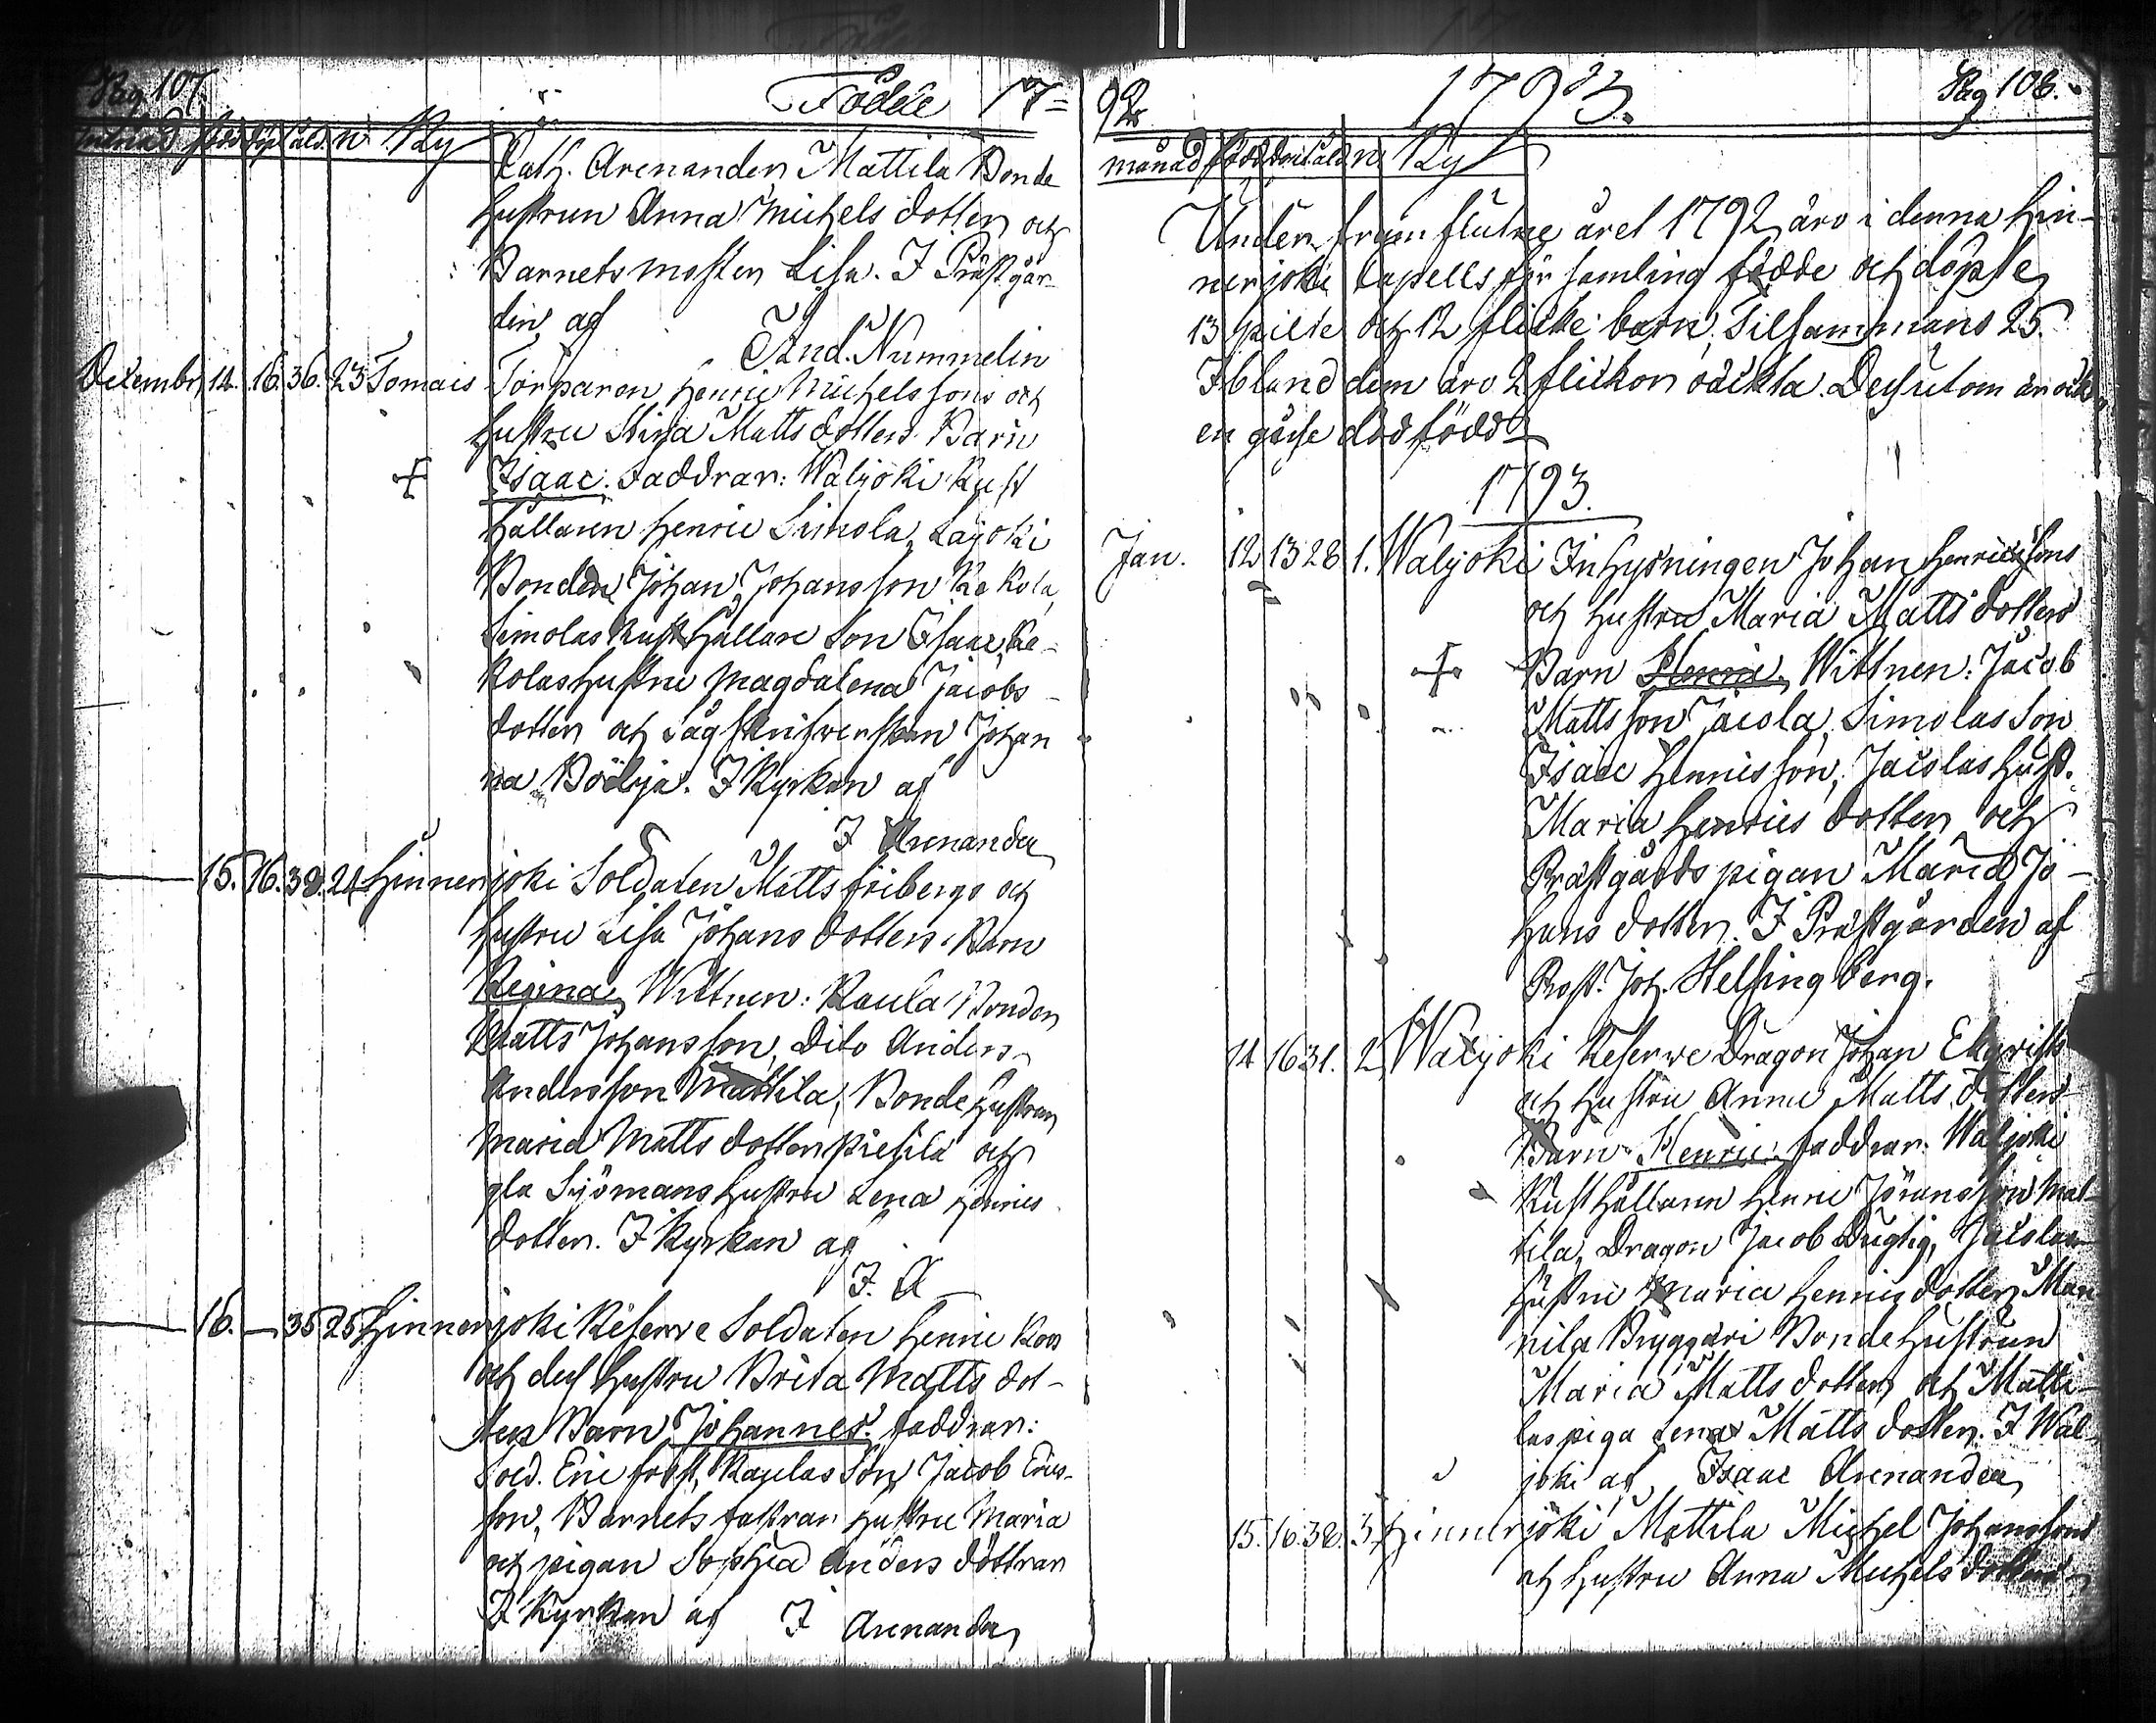 Pag 107.
Födde 17=
månad född döpt åld. n. Ky
Cath. Arenander, Mattila Bonde
hustrun Anna Michels dotter och
Barnets moster Lisa. I Prästgår-
den af
And. Nummelin
Decembr. 14. 16. 36. 23 Tomais Torparen Henric Michelssons och
hustru Stina Matts dotters Barn
Isaac. Faddrar: Waljoki Rust
hållaren Henric Simola, Lajoki
Bonden Johan Johansson Kekola,
Simolas Rusthållare Son Isaac, Ke-
kolas hustru Magdalena Jacobs-
dotter och Johan
na Böölja. I Kyrkan af
I Arenander
15. 16. 38. 24 Hinnerjoki Soldaten Matts Fribergs och
hustru Lisa Johans dotters Barn
Regina, Wittnen: Kaula Bonden
Matts Johansson, Dito Anders
Andersson Mattila, Bonde hustrun
Maria Matts dotter Pietilä och
gla Sjömans hustru Lena Henrics
dotter. I Kyrkan af
I. A
16. — 35 25 Hinnerjoki Reserve Soldaten Henric Kors
och dess hustru Brita Matts dot-
ters Barn Johannes. Faddrar:
Sold. Eric Frost, Kaulas Son Jacob Erics-
son, Barnets fastrar hustru Maria
och pigan Sophia Anders döttrar
I Kyrkan af I Arenander
92.
1793.
Pag 108.
månad född döpt åld n. Ky
Under fram flutne året 1792 äro i denna Hin-
nerjoki Capells för samling födde och döpte
13 pilte och 12 flicke barn, Tilsammans 25.
Ibland dem äro 2 flickor oäckta. Desutom är ock
en gåsse död född
1793.
Jan. 12 13 28 1. Waljoki Inhysningen Johan Henricssons
och hustru Maria Matts dotters
Barn Henric, Wittnen: Jacob
Mattsson Jacola, Simolas Son
Isaac Henricsson, Jacolas hust.
Maria Henrics dotter och
Prästgårds pigan Maria Jo-
hans dotter. I Prästgården af
Prost. Joh. Helsingberg.
14 16 31. 2 Waljoki Reserve Dragon Johan Ekqvists
och hustru Anna Matts dotters
Barn Henric. Faddrar: Waljoki
Rusthållaren Henric Jöransson Mat-
tila, Dragon Jacob Dugtig, Jacolas
hustru Maria Henricsdotter, Man
nila Bryggari Bonde hustrun
Maria Matts dotter, och Matti-
las piga Lena Matts dotter. I Wal-
joki af Isaac Arenander
15. 16. 38. 3. Hinnerjoki Mattila Michel Johanssons
och hustru Anna Michels dotters